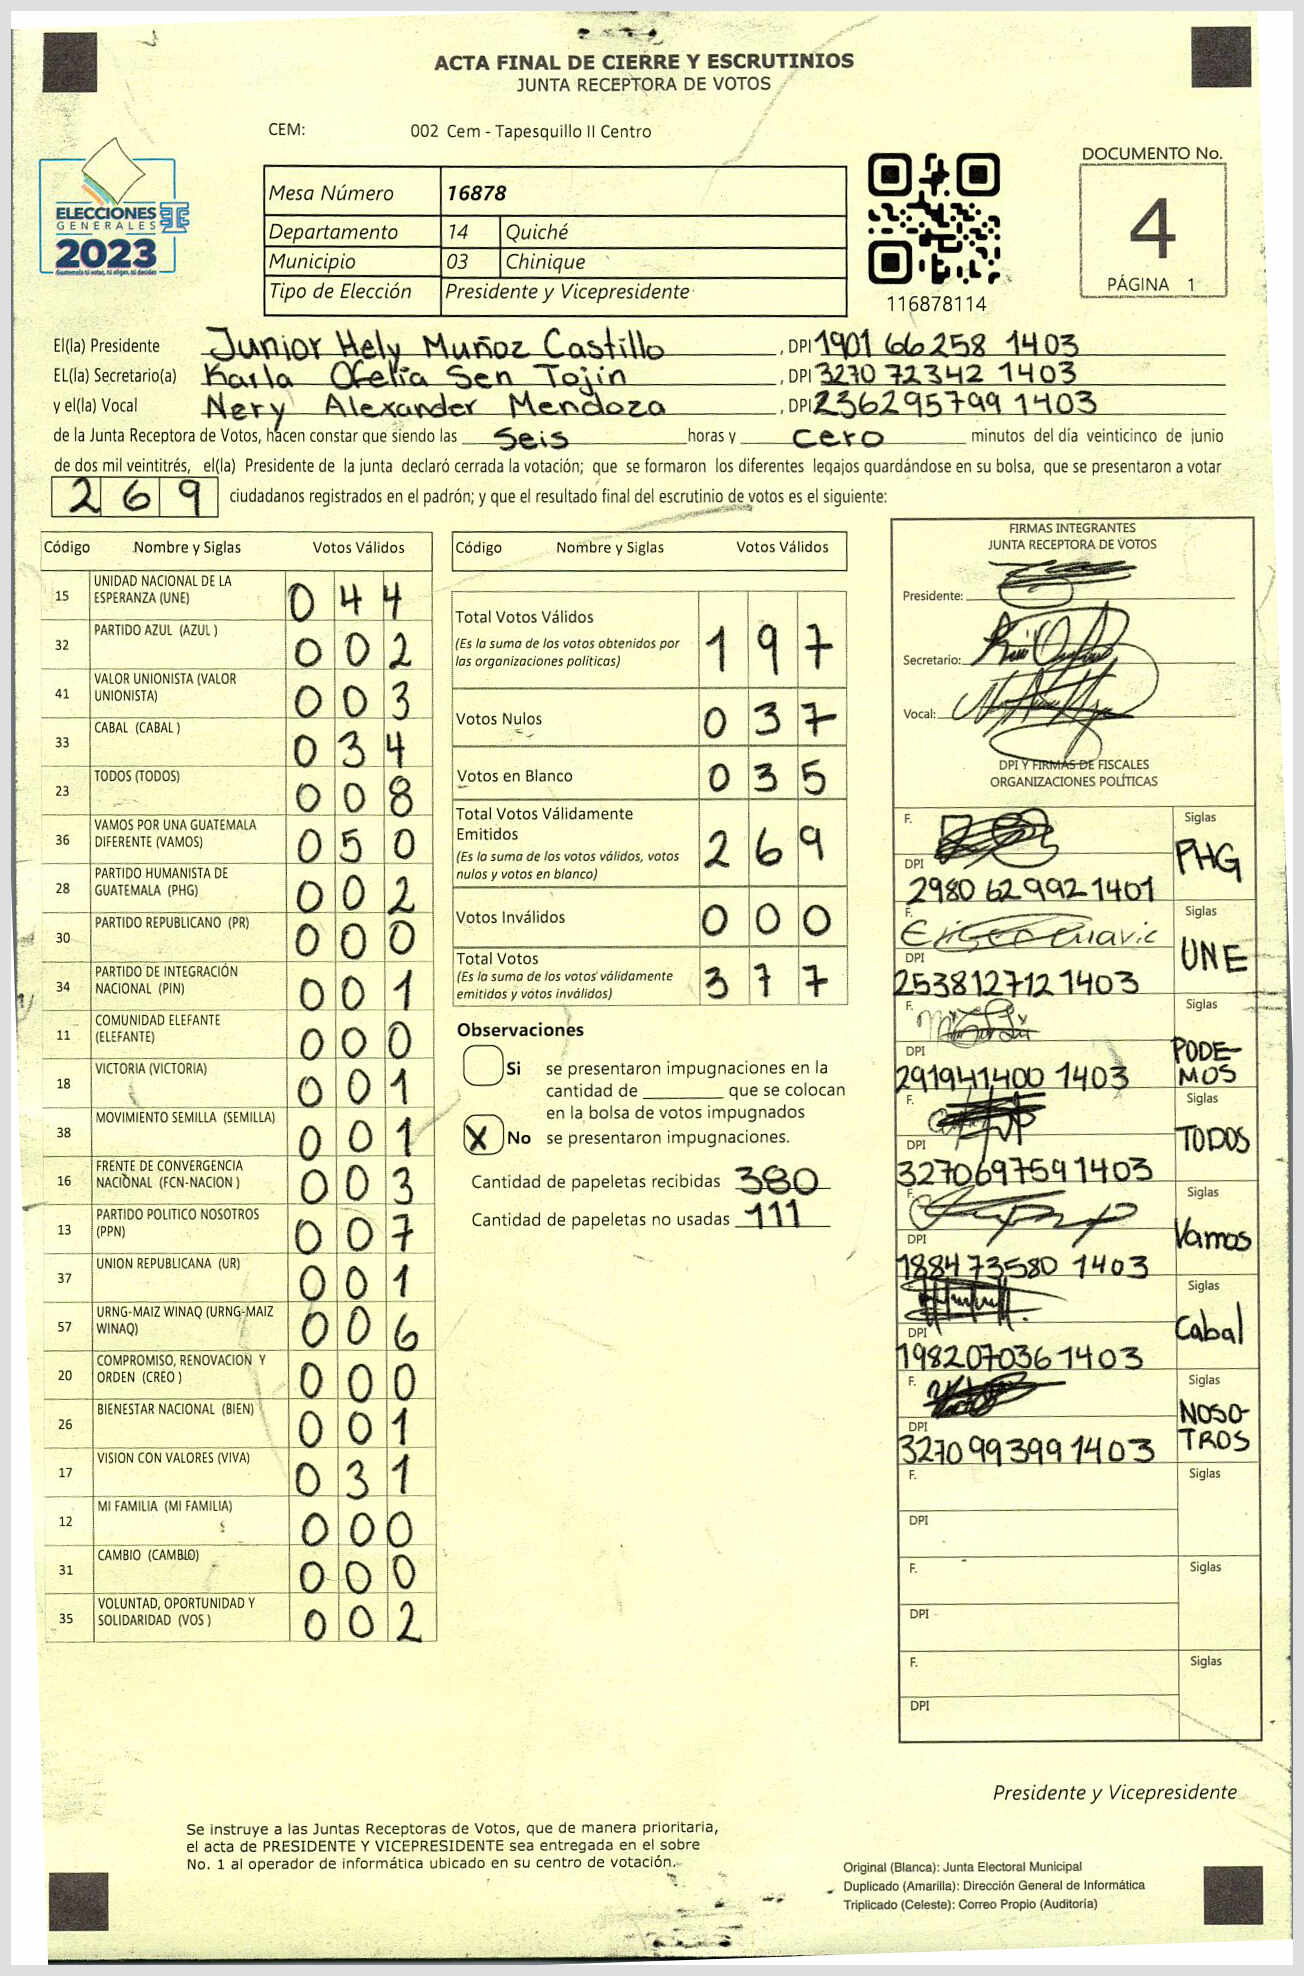 ACTA FINAL DE CIERRE Y ESCRUTINIOS
JUNTA RECEPTORA DE VOTOS
CEM: 002 Cem - Tapesquillo II Centro
DOCUMENTO No.
4
PÁGINA 1
ELECCIONES
GENERALES
2023
Guatemala tú votas, tú eliges, tú decides
Mesa Número 16878
Departamento 14 Quiché
Municipio 03 Chinique
Tipo de Elección Presidente y Vicepresidente
116878114
El(la) Presidente Junior Hely Muñoz Castillo , DPI 1901 66258 1403
EL(la) Secretario(a) Karla Ofelia Sen Tojin , DPI 3270 72342 1403
y el(la) Vocal Nery Alexander Mendoza , DPI 236295799 1403
de la Junta Receptora de Votos, hacen constar que siendo las Seis horas y cero minutos del día veinticinco de junio
de dos mil veintitrés, el(la) Presidente de la junta declaró cerrada la votación; que se formaron los diferentes legajos guardándose en su bolsa, que se presentaron a votar
269 ciudadanos registrados en el padrón; y que el resultado final del escrutinio de votos es el siguiente:
Código Nombre y Siglas Votos Válidos
15 UNIDAD NACIONAL DE LA ESPERANZA (UNE) 044
32 PARTIDO AZUL (AZUL ) 002
41 VALOR UNIONISTA (VALOR UNIONISTA) 003
33 CABAL (CABAL ) 034
23 TODOS (TODOS) 008
36 VAMOS POR UNA GUATEMALA DIFERENTE (VAMOS) 050
28 PARTIDO HUMANISTA DE GUATEMALA (PHG) 002
30 PARTIDO REPUBLICANO (PR) 000
34 PARTIDO DE INTEGRACIÓN NACIONAL (PIN) 001
11 COMUNIDAD ELEFANTE (ELEFANTE) 000
18 VICTORIA (VICTORIA) 001
38 MOVIMIENTO SEMILLA (SEMILLA) 001
16 FRENTE DE CONVERGENCIA NACIONAL (FCN-NACION ) 003
13 PARTIDO POLITICO NOSOTROS (PPN) 007
37 UNION REPUBLICANA (UR) 001
57 URNG-MAIZ WINAQ (URNG-MAIZ WINAQ) 006
20 COMPROMISO, RENOVACION Y ORDEN (CREO ) 000
26 BIENESTAR NACIONAL (BIEN) 001
17 VISION CON VALORES (VIVA) 031
12 MI FAMILIA (MI FAMILIA) 000
31 CAMBIO (CAMBIO) 000
35 VOLUNTAD, OPORTUNIDAD Y SOLIDARIDAD (VOS ) 002
Código Nombre y Siglas Votos Válidos
Total Votos Válidos 197
(Es la suma de los votos obtenidos por
las organizaciones políticas)
Votos Nulos 037
Votos en Blanco 035
Total Votos Válidamente
Emitidos 269
(Es la suma de los votos válidos, votos
nulos y votos en blanco)
Votos Inválidos 000
Total Votos 377
(Es la suma de los votos válidamente
emitidos y votos inválidos)
Observaciones
Si se presentaron impugnaciones en la
cantidad de ________ que se colocan
en la bolsa de votos impugnados
X No se presentaron impugnaciones.
Cantidad de papeletas recibidas 380
Cantidad de papeletas no usadas 111
FIRMAS INTEGRANTES
JUNTA RECEPTORA DE VOTOS
Presidente:
Secretario:
Vocal:
DPI Y FIRMAS DE FISCALES
ORGANIZACIONES POLÍTICAS
F. Siglas
PHG
DPI
2980 62992 1401
F. Siglas
UNE
DPI
253812712 1403
F. Siglas
PODE-
MOS
DPI
291941400 1403
F. Siglas
TODOS
DPI
327069759 1403
F. Siglas
Vamos
DPI
188473580 1403
Siglas
Cabal
DPI
198207036 1403
F. Siglas
NOSO-
TROS
DPI
3270 99399 1403
F. Siglas
DPI
F. Siglas
DPI
F. Siglas
DPI
Presidente y Vicepresidente
Se instruye a las Juntas Receptoras de Votos, que de manera prioritaria,
el acta de PRESIDENTE Y VICEPRESIDENTE sea entregada en el sobre
No. 1 al operador de informática ubicado en su centro de votación.
Original (Blanca): Junta Electoral Municipal
Duplicado (Amarilla): Dirección General de Informática
Triplicado (Celeste): Correo Propio (Auditoría)